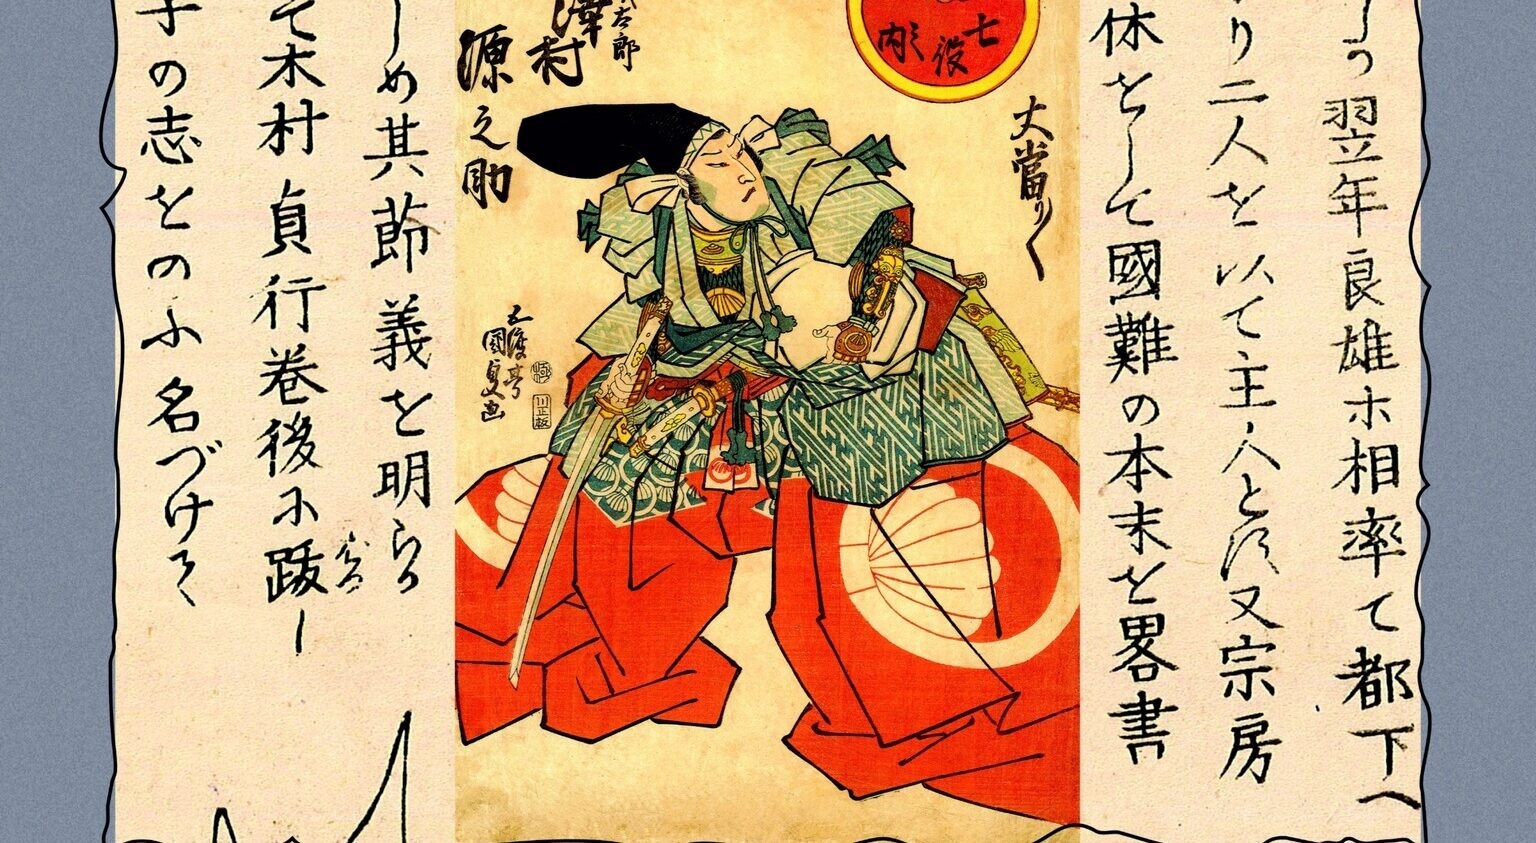 翌年良雄ホ相率て都下へ
り二人を以て主人と次又宗房
休をして國難の本末を畧書
七役
内
大當り〳〵
太郎
澤村
源之助
五渡亭
國貞画
川正板
しめ其莭義を明らか
て木村貞行巻後に跋し
子の志をのふ名づけて